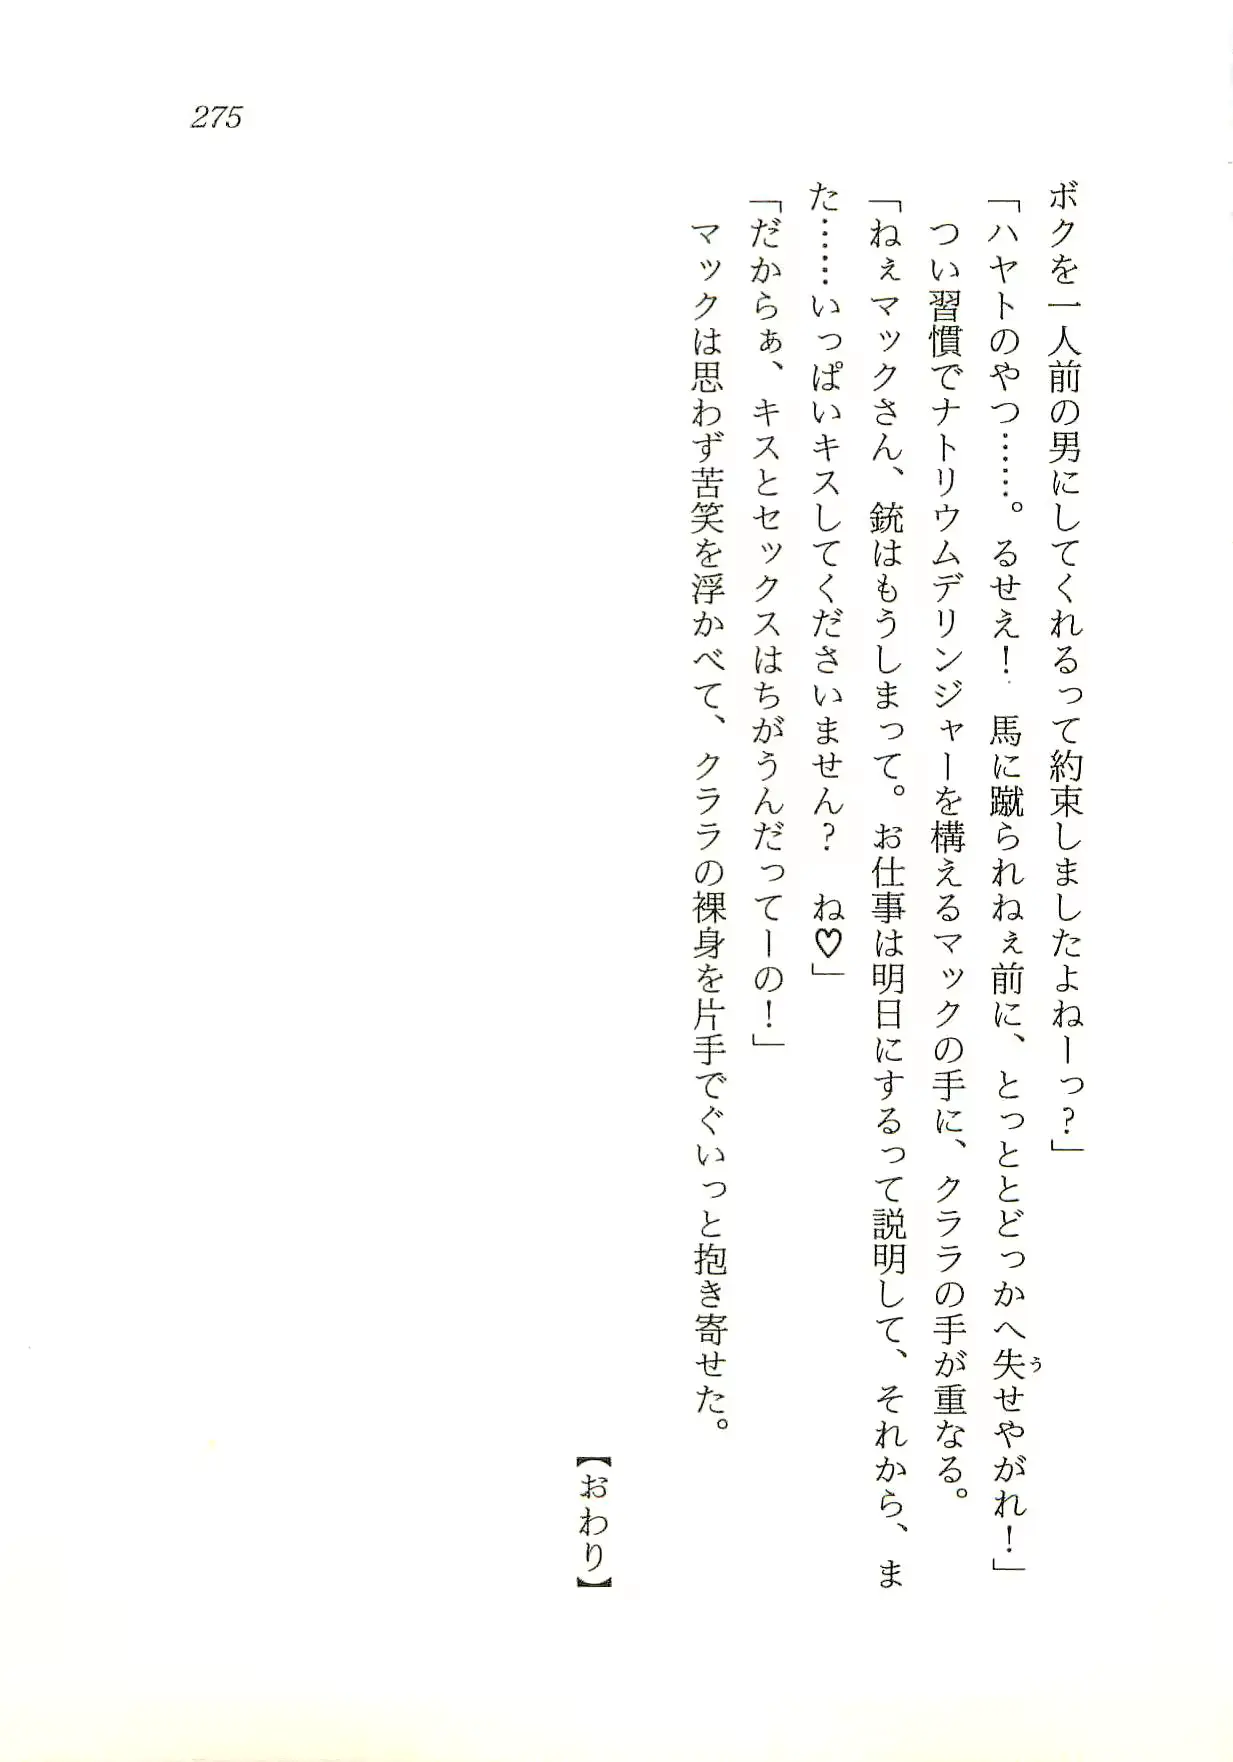 275
ボクを一人前の男にしてくれるって約束しましたよねーっ？」
「ハヤトのやつ……。るせえ！　馬に蹴られねぇ前に、とっととどっかへ失せやがれ！」
う
　つい習慣でナトリウムデリンジャーを構えるマックの手に、クララの手が重なる。
「ねぇマックさん、銃はもうしまって。お仕事は明日にするって説明して、それから、ま
た……いっぱいキスしてくださいません？　ね♡」
「だからぁ、キスとセックスはちがうんだってーの！」
　マックは思わず苦笑を浮かべて、クララの裸身を片手でぐいっと抱き寄せた。
【おわり】